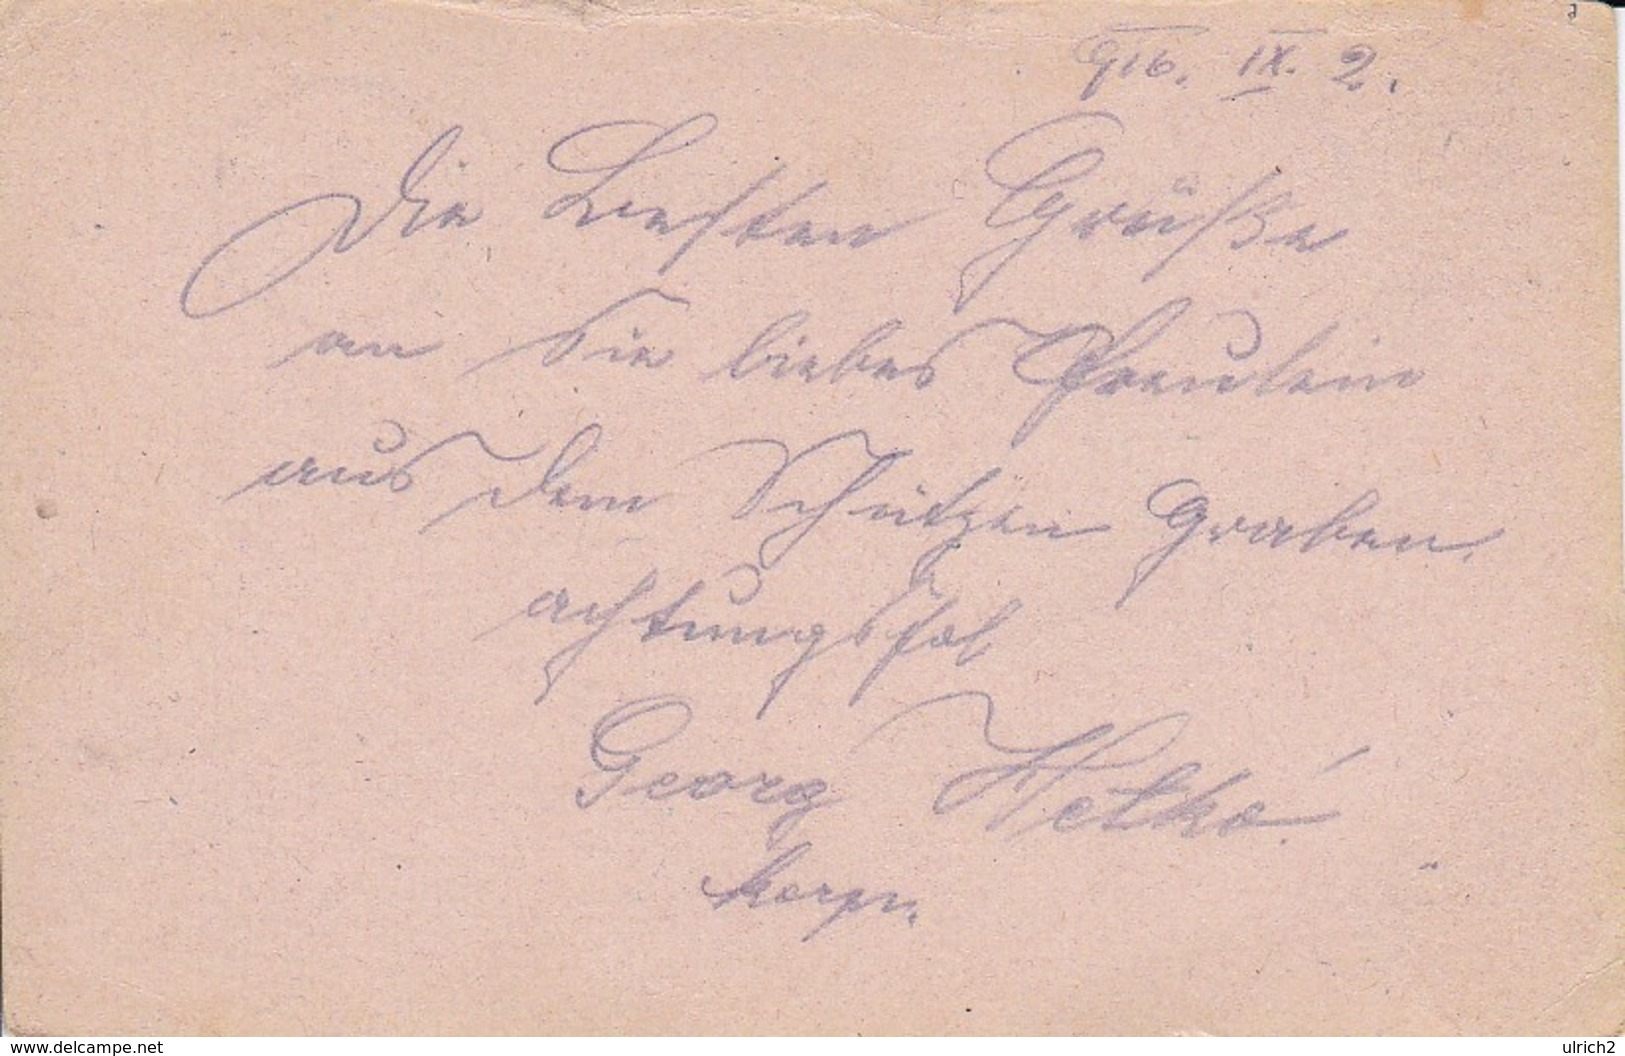 916. IX. 2.
Die Besten Grüße
an Sie liebes Freulein
aus dem Schützen Graben.
achtungsfol
Georg Hetkó.
korp.
www.delcampe.net
ulrich2